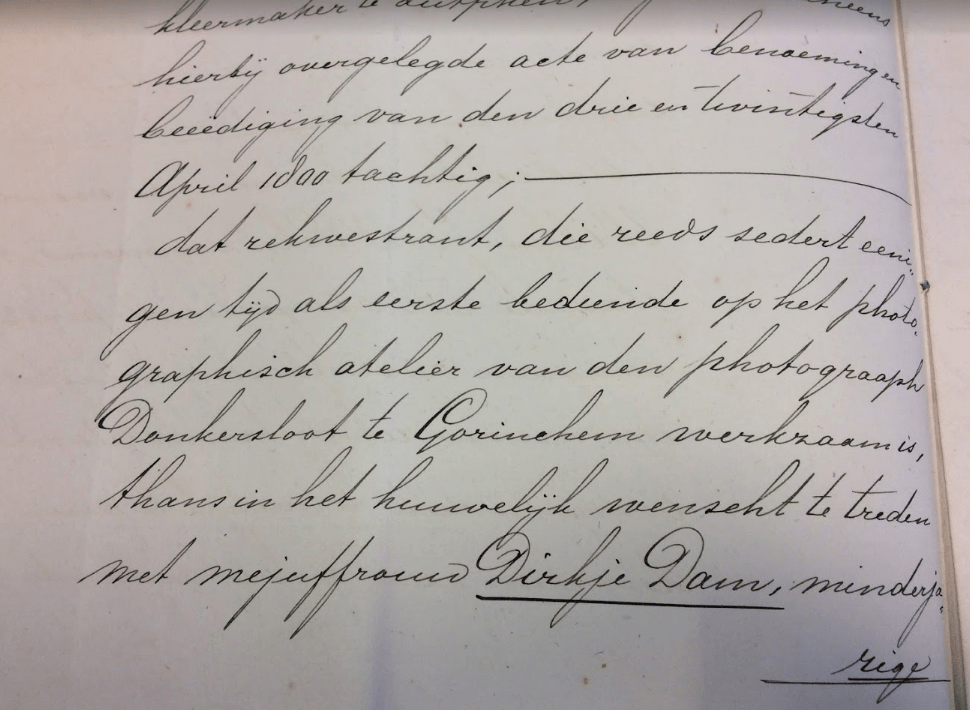 kleermaker te Zutphen,
hierbij overgelegde acte van benoeming en
beeediging van den drie en twintigsten
April 1800 tachtig;
dat rekwestrant, die reeds sedert eeni-
gen tijd als eerste bediende op het photo-
graphisch atelier van den photograaph
Donkersloot te Gorinchem werkzaam is,
thans in het huwelijk wenscht te treden
met mejuffrouw Dirkje Dam, minderja-
rige